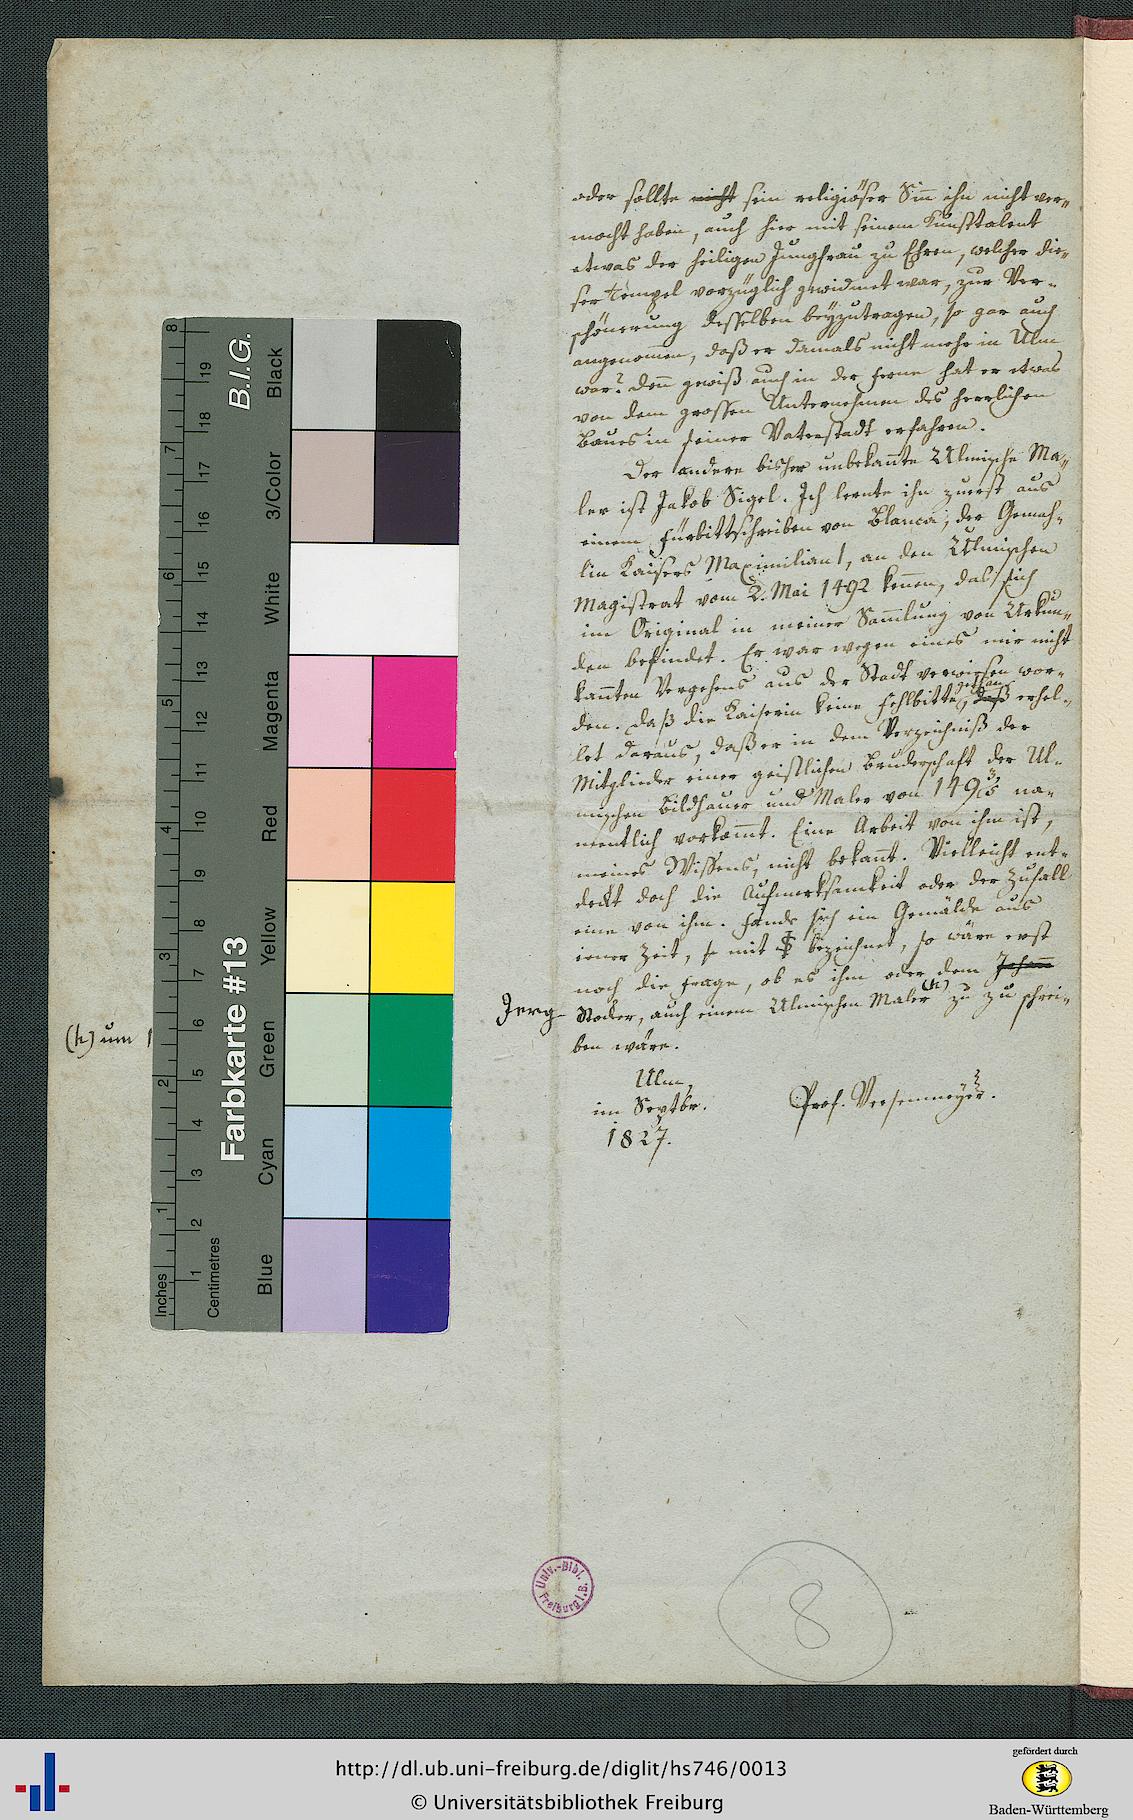 oder sollte nicht sein religiöser Sinn ihn nicht ver-
mocht haben, auch hier mit seinem Kunsttalent
etwas der heiligen Jungfrau zu Ehren, welcher die-
ser Tempel vorzüglich gewidmet war, zur Ver-
schönerung desselben beyzutragen, so gar auch
angenommen, daß er damals nicht mehr in Ulm
war? denn gewiß auch in der Ferne hat er etwas
von dem grossen Unternehmen des herrlichen
Baues in seiner Vaterstadt erfahren.
Der andere bisher unbekannte Ulmische Ma-
ler ist Jakob Sigel. Ich lernte ihn zuerst aus
einem Fürbittschreiben von Blanca, der Gemah-
lin Kaisers Maximilian I, an den Ulmischen
Magistrat vom 2. Mai 1492 kennen, das sich
im Original in meiner Sammlung von Urkun-
den befindet. Er war wegen eines mir nicht
kannten Vergehens aus der Stadt verwiesen wor-
den. Daß die Kaiserin keine Fehlbitte gethan, daß erhel-
let daraus, daß er in dem Verzeichniß der
Mitglieder einer geistlichen Bruderschaft der Ul-
mischen Bildhauer und Maler von 1493 na-
mentlich vorkommt. Eine Arbeit von ihm ist,
meines Wissens, nicht bekannt. Vielleicht ent-
deckt doch die Aufmerksamkeit oder der Zufall
eine von ihm. Fände sich ein Gemälde aus
jener Zeit, mit bezeichnet, so wäre erst
noch die Frage, ob es ihm oder dem Johann
Jerg Stocker, auch einem Ulmischen Maler (h) zu zu schrei-
ben wäre.
(h) um 1
Ulm,
im Septbr.
1827.
Prof. Veesenmeyer.
8
Univ.-Bibl.
Freiburg i. B.
Farbkarte #13
B.I.G.
Inches
1 2 3 4 5 6 7 8
Centimetres
1 2 3 4 5 6 7 8 9 10 11 12 13 14 15 16 17 18 19
Blue
Cyan
Green
Yellow
Red
Magenta
White
3/Color
Black
http://dl.ub.uni-freiburg.de/diglit/hs746/0013
© Universitätsbibliothek Freiburg
gefördert durch
Baden-Württemberg